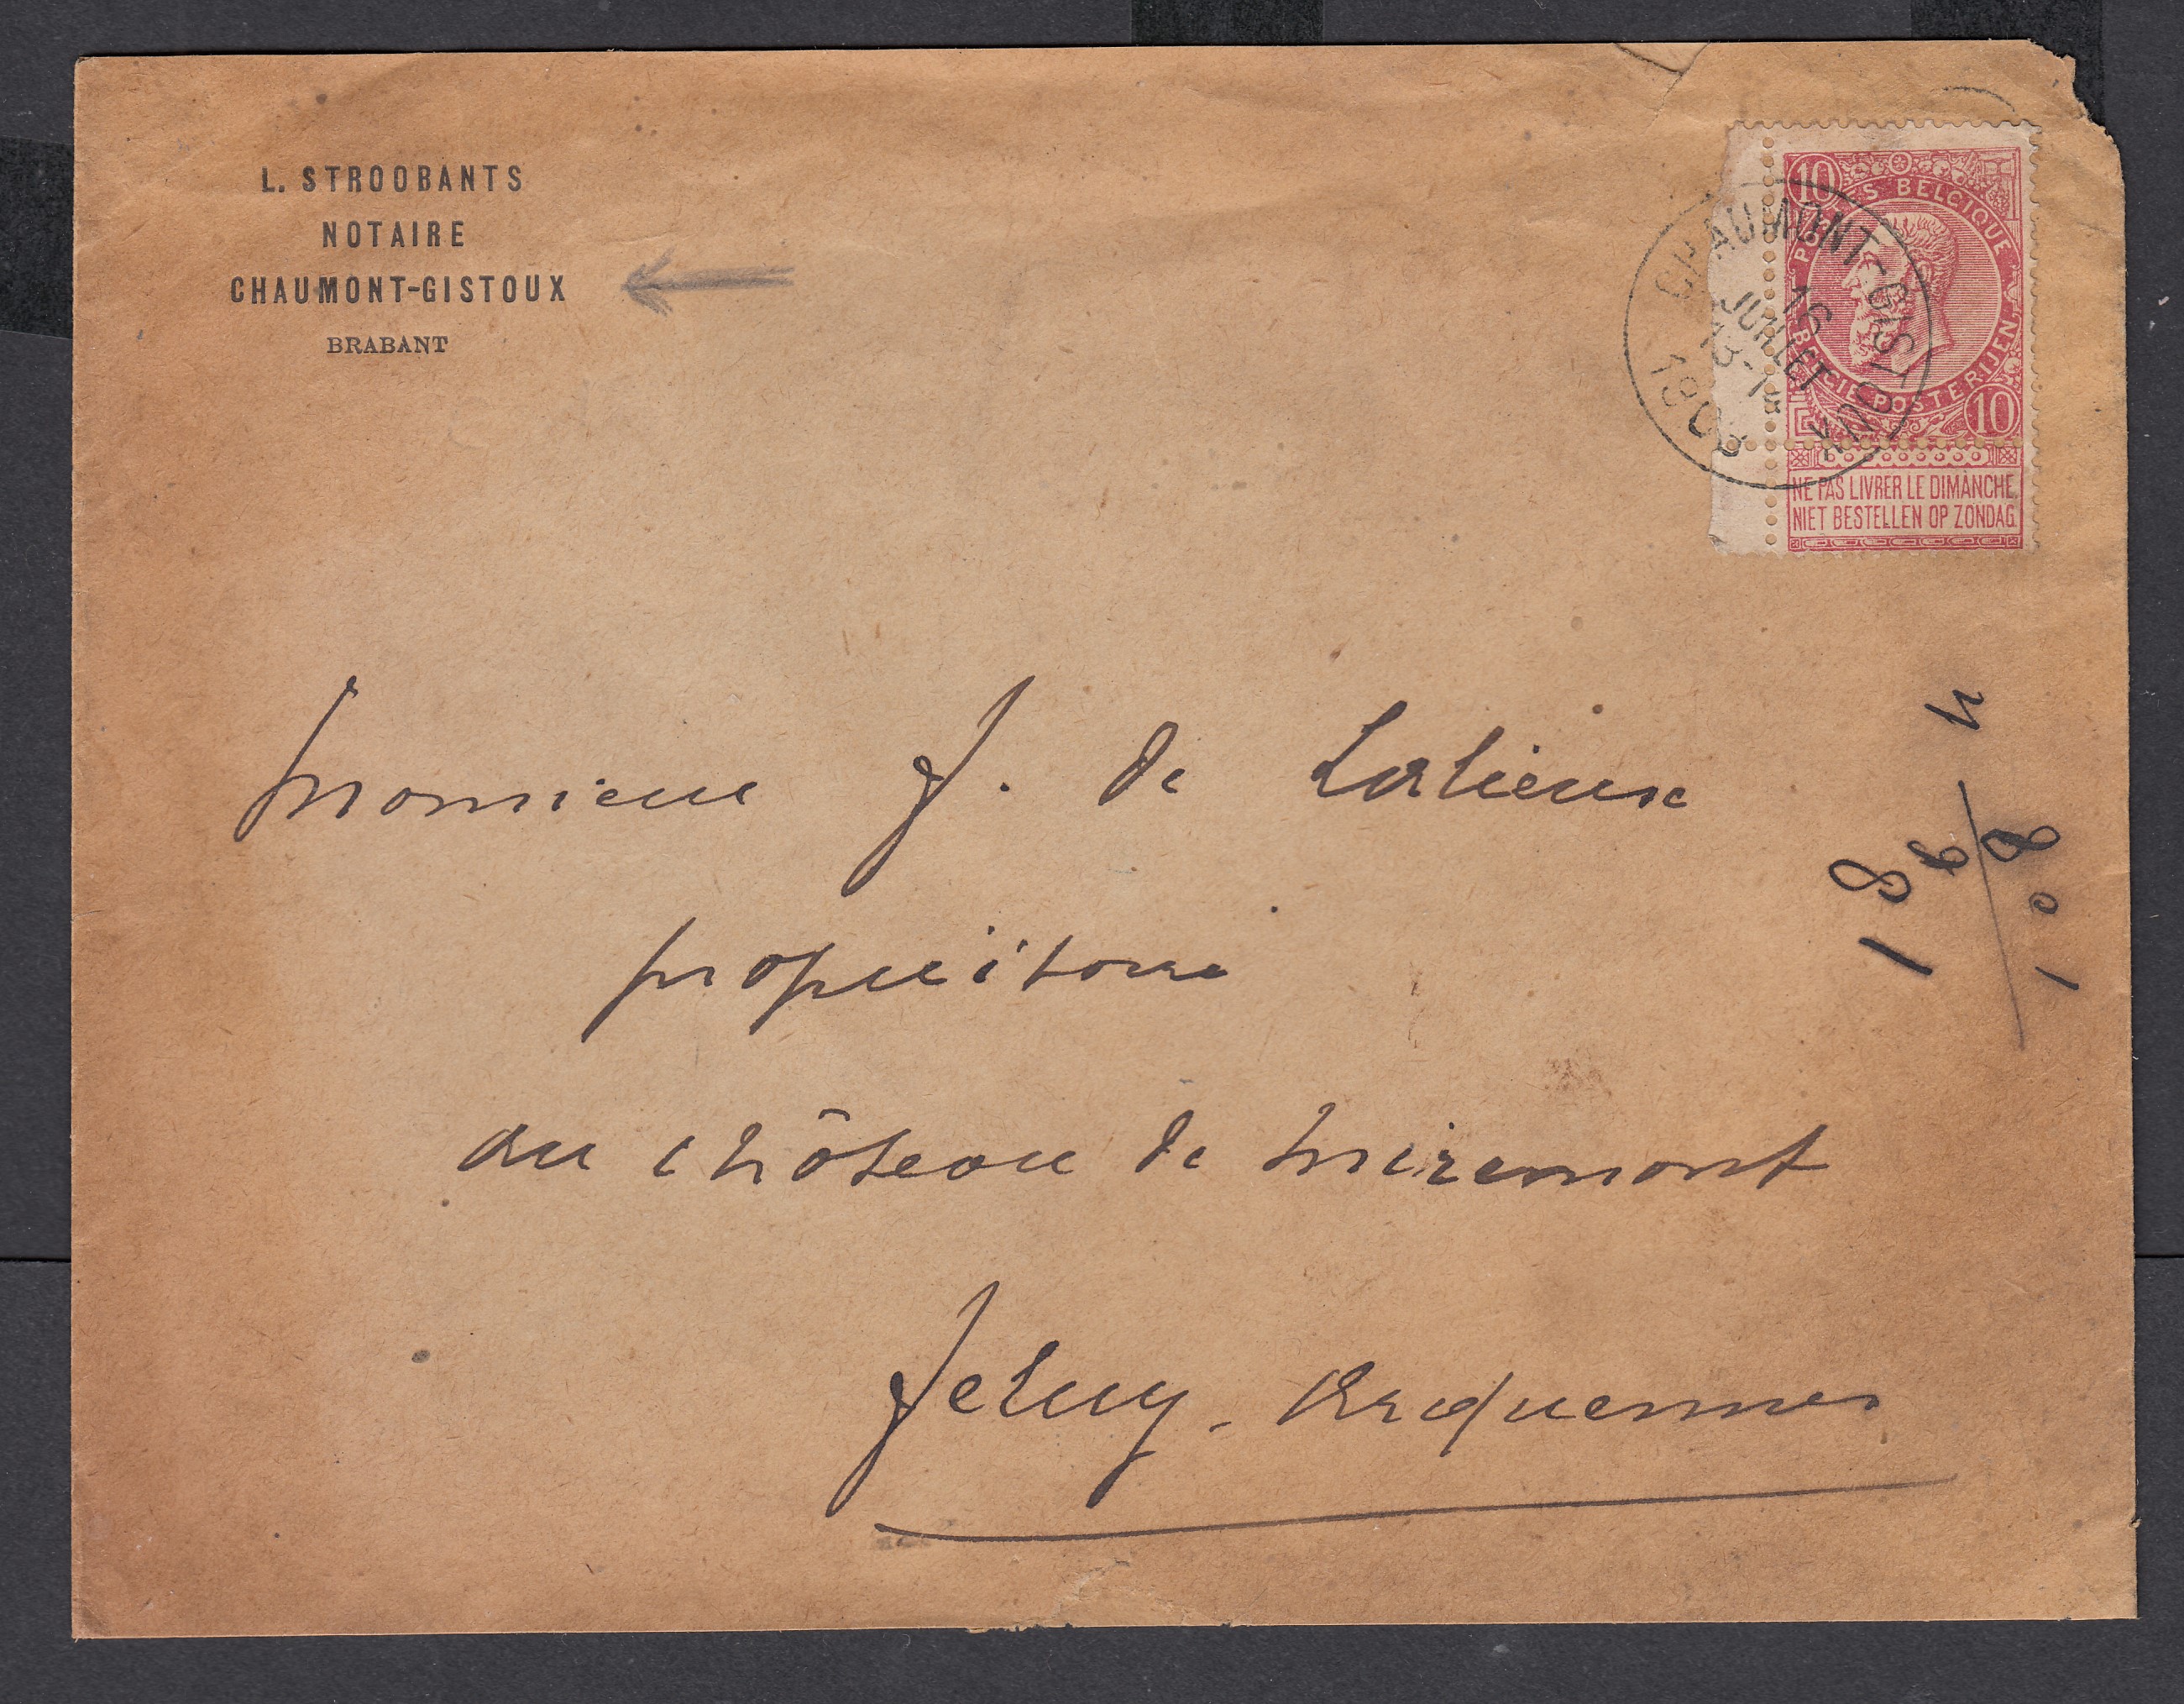 L. STROOBANTS
NOTAIRE
CHAUMONT-GISTOUX
BRABANT
10 10
POSTES BELGIQUE
BELGIE POSTERIJEN
NE PAS LIVRER LE DIMANCHE
NIET BESTELLEN OP ZONDAG
CHAUMONT-GISTOUX
16
JUILLET
Monsieur J. de Lalieux
propriétaire
au château de Miremont
Feluy-Arquennes